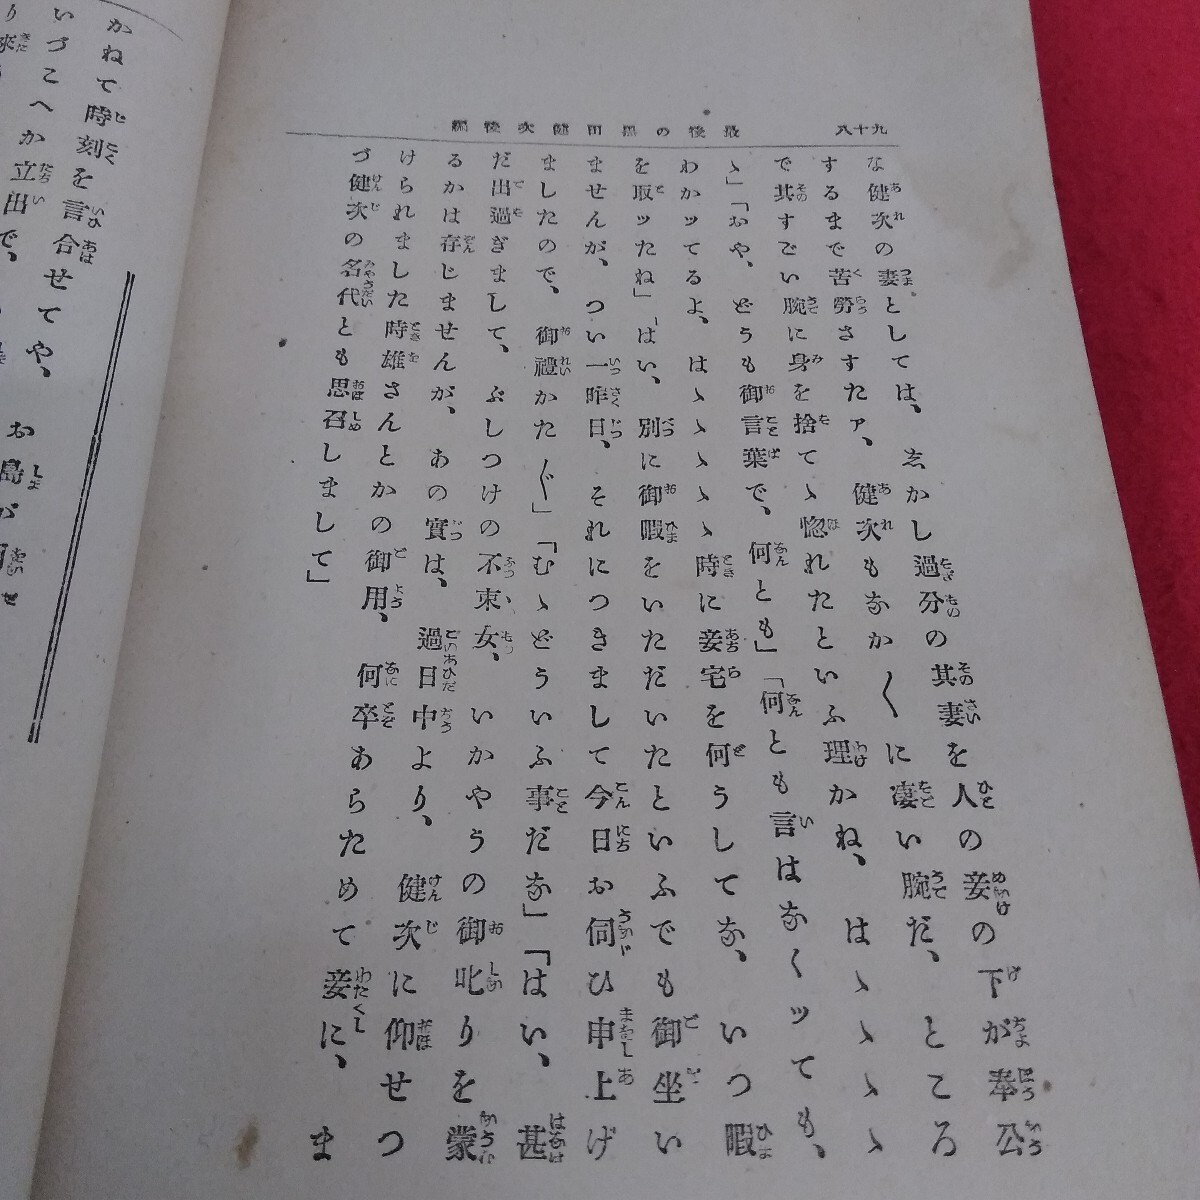 九十八
最後の黑田健次後編
な健次の妻としては、志かし過分の其妻を人の妾の下が奉公
するまで苦勞さすたァ、健次もなか〱に凄い腕だ、ところ
で其すごい腕に身を捨てゝ惚れたといふ理かね、はゝゝゝゝ
ゝ」「おや、どうも御言葉で、何とも」「何とも言はなくッても、
わかッてるよ、はゝゝゝゝ時に妾宅を何うしてな、いつ暇
を取ッたね」「はい、別に御暇をいただいたといふでも御坐い
ませんが、つい一昨日、それにつきまして今日お伺ひ申上げ
ましたので、御禮かた〲」「むゝどういふ事だな」「はい、甚
だ出過ぎまして、ぶしつけの不束女、いかやうの御叱りを蒙
るかは存じませんが、あの實は、過日中より、健次に仰せつ
けられました時雄さんとかの御用、何卒あらためて妾に、ま
づ健次の名代とも思召しまして」
お島が
かねて時刻を言合せてや、
いづこへか立出で、